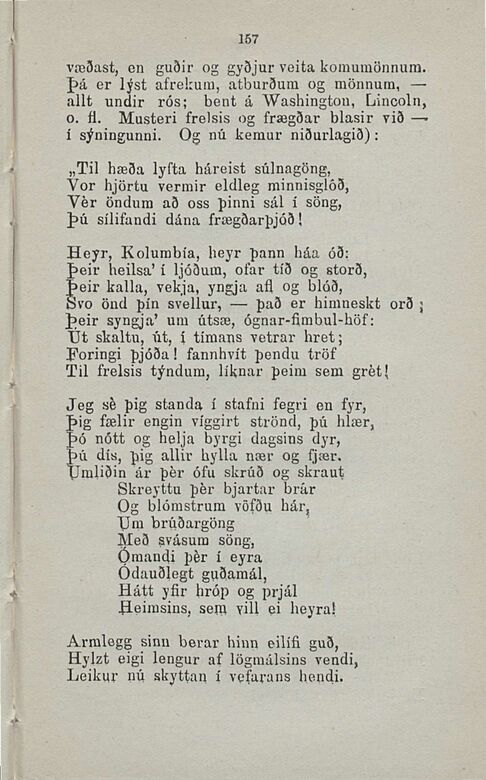 157
væðast, en guðir og gyðjur veita komumönnum.
Þá er lýst afrekum, atburðum og mönnum, —
allt undir rós; bent á Washington, Lincoln,
o. fl. Musteri frelsis og frægðar blasir við —
í sýningunni. Og nú kemur niðurlagið):
„Til hæða lyfta háreist súlnagöng,
Vor hjörtu vermir eldleg minnisglóð,
Vèr öndum að oss þinni sál í söng,
Þú sílifandi dána frægðarþjóð!
Heyr, Kolumbía, heyr þann háa óð:
Þeir heilsa' í ljóðum, ofar tíð og storð,
Þeir kalla, vekja, yngja afl og blóð,
Svo önd þín svellur, — það er himneskt orð;
Þeir syngja' um útsæ, ógnar-fimbul-höf:
Út skaltu, út, í tímans vetrar hret;
Foringi þjóða! fannhvít þendu tröf
Til frelsis týndum, líknar þeim sem grèt!
Jeg sè þig standa í stafni fegri en fyr,
Þig fælir engin víggirt strönd, þú hlær,
Þó nótt og helja byrgi dagsins dyr,
Þú dís, þig allir hylla nær og fjær.
Umliðin ár þèr ófu skrúð og skraut
Skreyttu þèr bjartar brár
Og blómstrum vöfðu hár,
Um brúðargöng
Með svásum söng,
Ómandi þèr í eyra
Ódauðlegt guðamál,
Hátt yfir hróp og prjál
Heimsins, sem vill ei heyra!
Armlegg sinn berar hinn eilífi guð,
Hylzt eigi lengur af lögmálsins vendi,
Leikur nú skyttan í vefarans hendi.